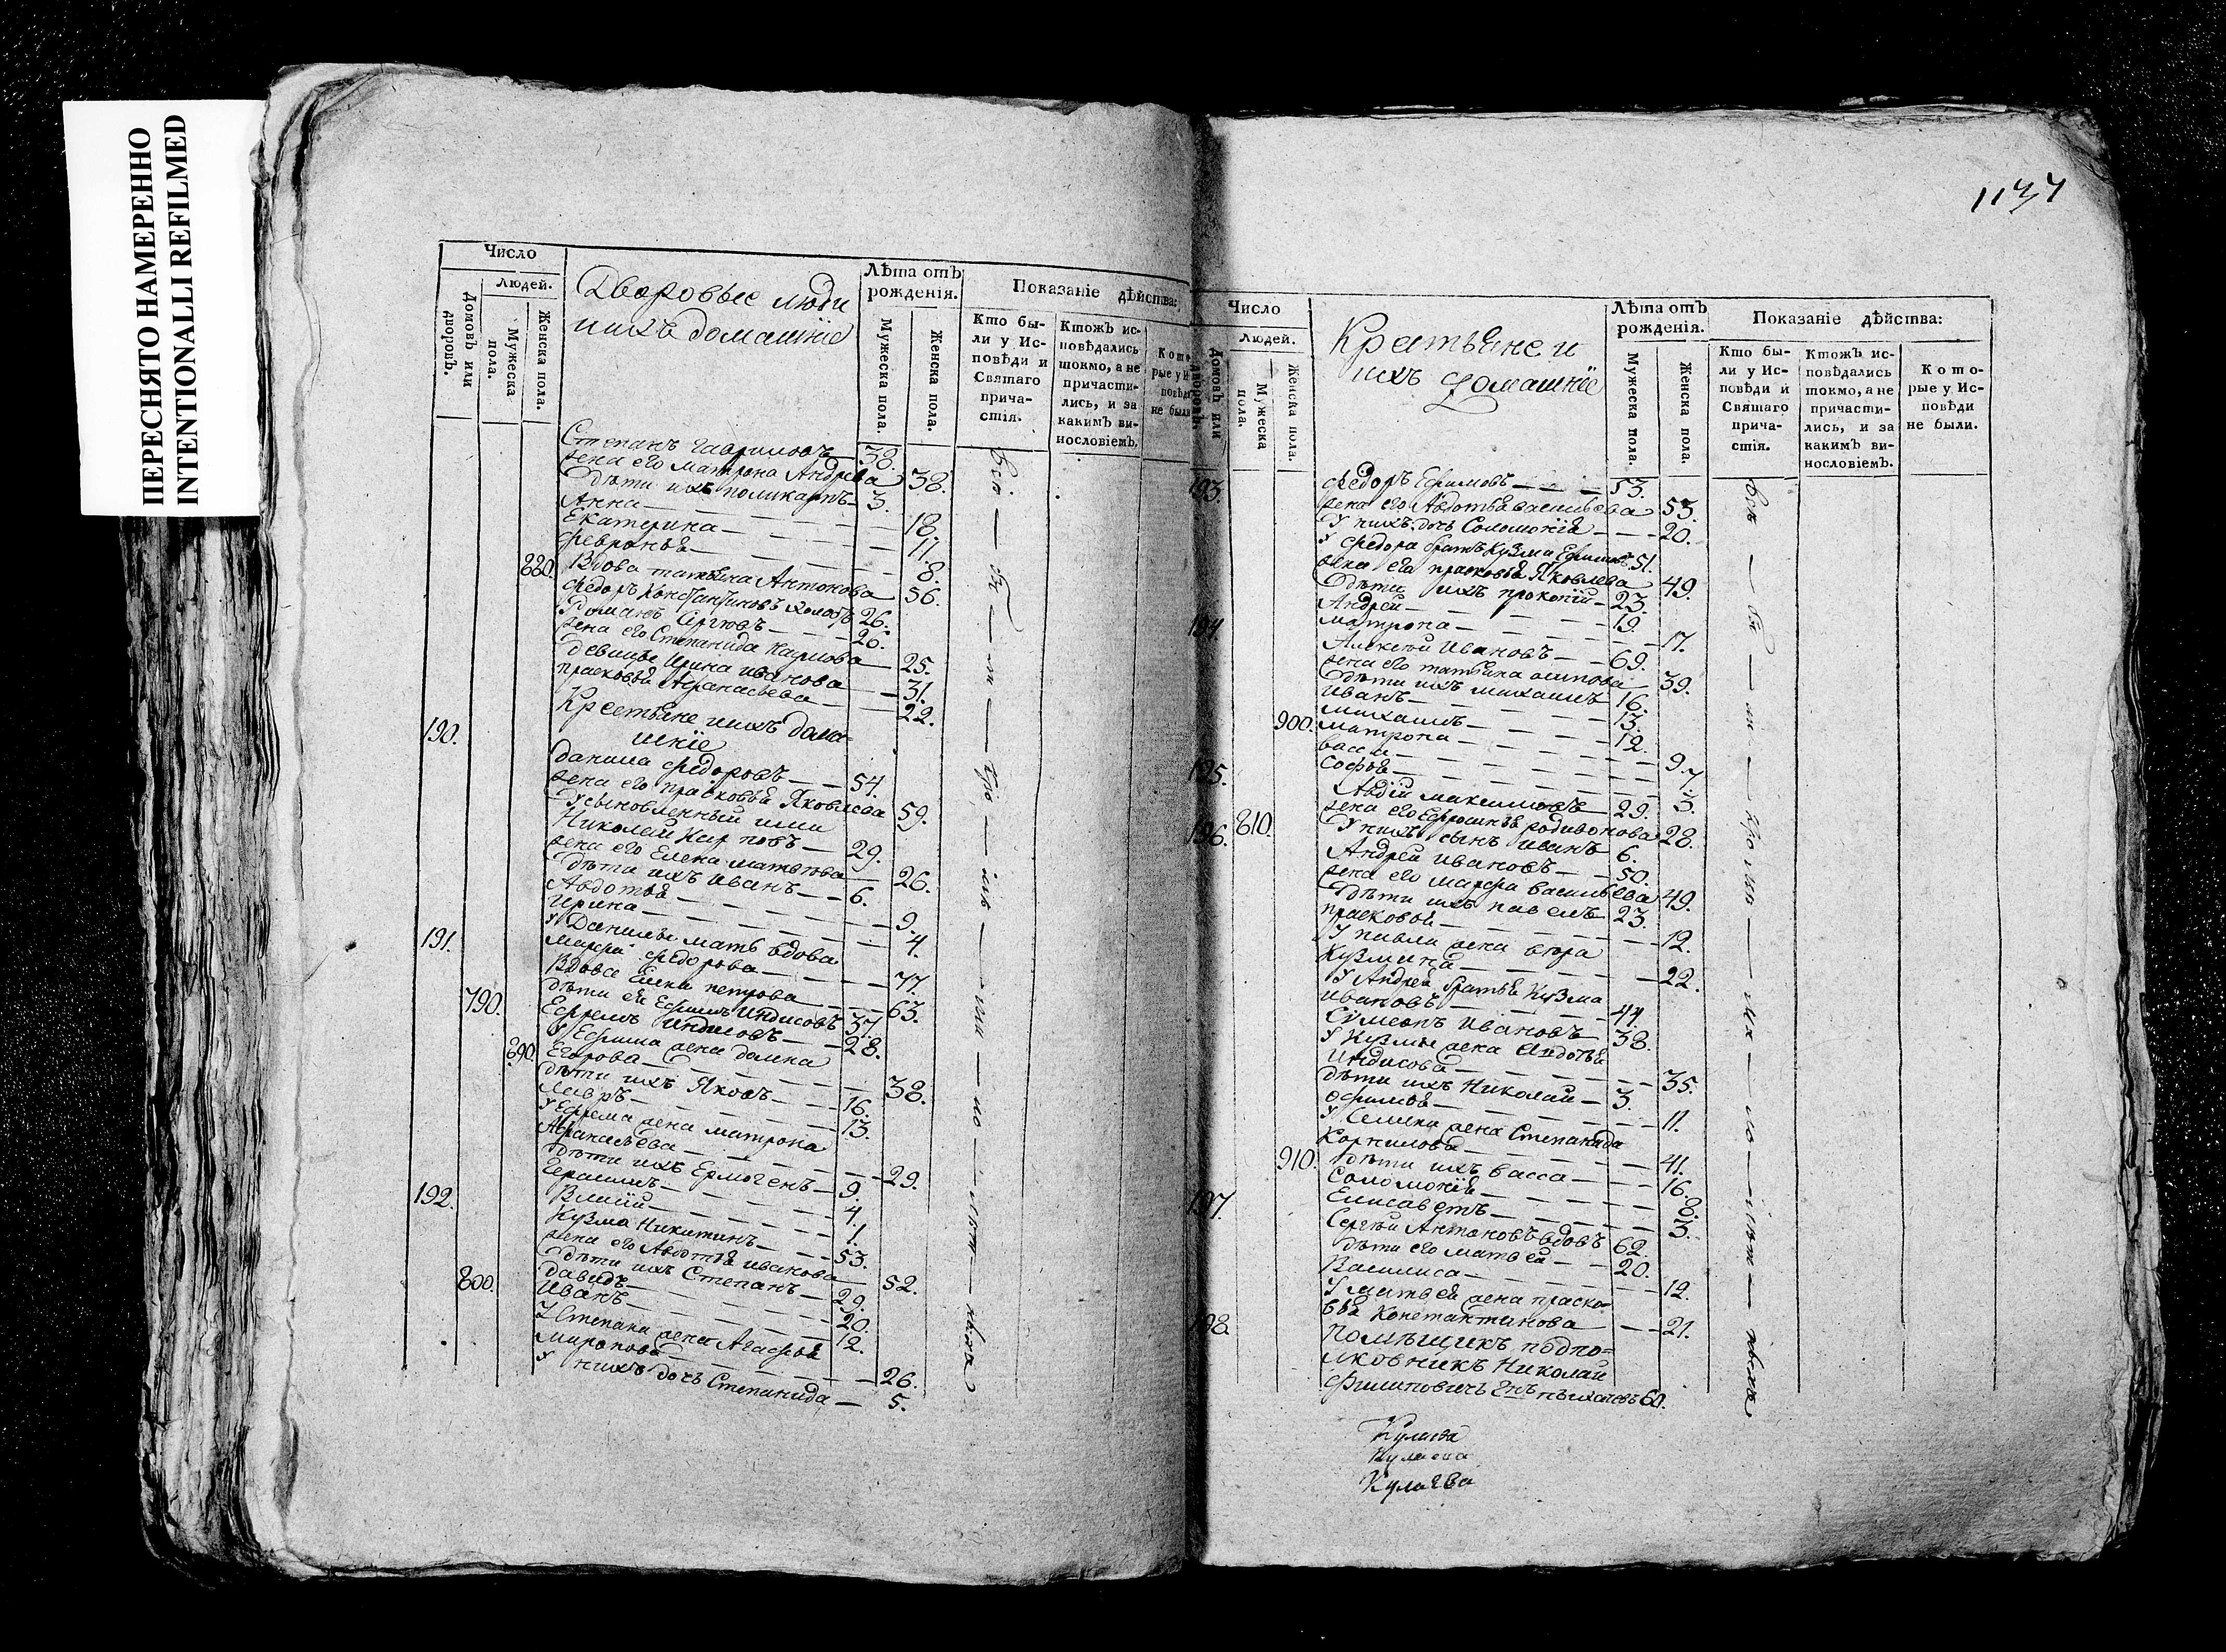 ПЕРЕСНЯТО НАМЕРЕННО
INTENTIONALLI REFILMED
Число
Людей.
Домовъ или дворовъ.
Мужеска пола.
Женска пола.
Дворовые люди
ихъ домашніе
Лѣта отъ рожденія.
Мужеска пола.
Женска пола.
Показаніе дѣйства:
Кто были у Исповѣди и Святаго причастія.
Ктожъ исповѣдались токмо, а не причастились, и за какимъ винословіемъ.
Которые у Исповѣди не были
Степанъ Гавриловъ 38.
жена его матрона Андрѣева 38.
дѣти ихъ поликарпъ 3.
Анна 18.
Екатерина 11.
февронья 8.
880. Вдова татьяна Антонова 56.
федоръ Константиновъ холостъ 26.
Романъ Сергѣевъ 26.
жена его Степанида Карпова 25.
девицы Ирина иванова 31.
прасковья Афанасьева 22.
Крестьяне ихъ дома-
шніе
190. данила федоровъ 54.
жена его прасковья Яковлева 59.
Усыновленный ими
Николай 29.
жена его Елена матвѣева 26.
дѣти ихъ иванъ 6.
Авдотья 9.
Ирина 4.
У Данилы мать вдова
марфа федорова 77.
191. Вдова Елена петрова 63.
790. дѣти ея Ефимъ 37.
Ефремъ 28.
У Ефима жена домна
890. Егорова 38.
дѣти ихъ Яковъ 16.
Лавръ 13.
У Ефрема жена матрона
Афанасьева 29.
дѣти ихъ Ермогенъ 9.
Герасимъ 4.
1.
192. Кузма Никитинъ 53.
жена его Авдотья иванова 52.
дѣти ихъ Степанъ 29.
800. давидъ 20.
Иванъ 12.
У Степана жена Агафья
миронова 26.
У нихъ дочь Степанида 5.
1137
Число
Людей.
Домовъ или дворовъ.
Мужеска пола.
Женска пола.
Крестьяне и
ихъ домашніе
Лѣта отъ рожденія.
Мужеска пола.
Женска пола.
Показаніе дѣйства:
Кто были у Исповѣди и Святаго причастія.
Ктожъ исповѣдались токмо, а не причастились, и за какимъ винословіемъ.
Которые у Исповѣди не были.
193. федоръ Ефимовъ 53.
жена его Авдотья васильева 53.
У нихъ дочь Соломонія 20.
У федора братъ Кузма Ефимовъ 51.
жена его прасковья Яковлева 49.
дѣти ихъ прокопій 23.
Андрей 19.
матрона 17.
194. Алексѣй Ивановъ 69.
жена его татьяна осипова 39.
дѣти ихъ михаилъ 16.
иванъ 13.
михаилъ 12.
900. матрона 9.
васса 7.
софья 3.
195. Авдій максимовъ 29.
жена его Ефросинья родивонова 28.
810. У нихъ сынъ иванъ 6.
196. Андрей ивановъ 50.
жена его марфа васильева 49.
дѣти ихъ павелъ 23.
прасковья 12.
У павла жена
Кузмина 22.
У Андрея братья Кузма
ивановъ 44.
Сумеонъ Ивановъ 38.
У Кузмы жена Авдотья
35.
дѣти ихъ Николай 3.
офимья 11.
У Семена жена Степанида
Корнилова 41.
910. дѣти ихъ васса 16.
Соломонія 8.
Елисаветъ 3.
197. Сергѣй Антоновъ вдовъ 62.
дѣти его матвей 20.
Василиса 12.
У матвея жена праско-
вья Константинова 21.
198. Помѣщикъ подпо-
лковникъ Николай
Филиповичь 60.
Кулаева